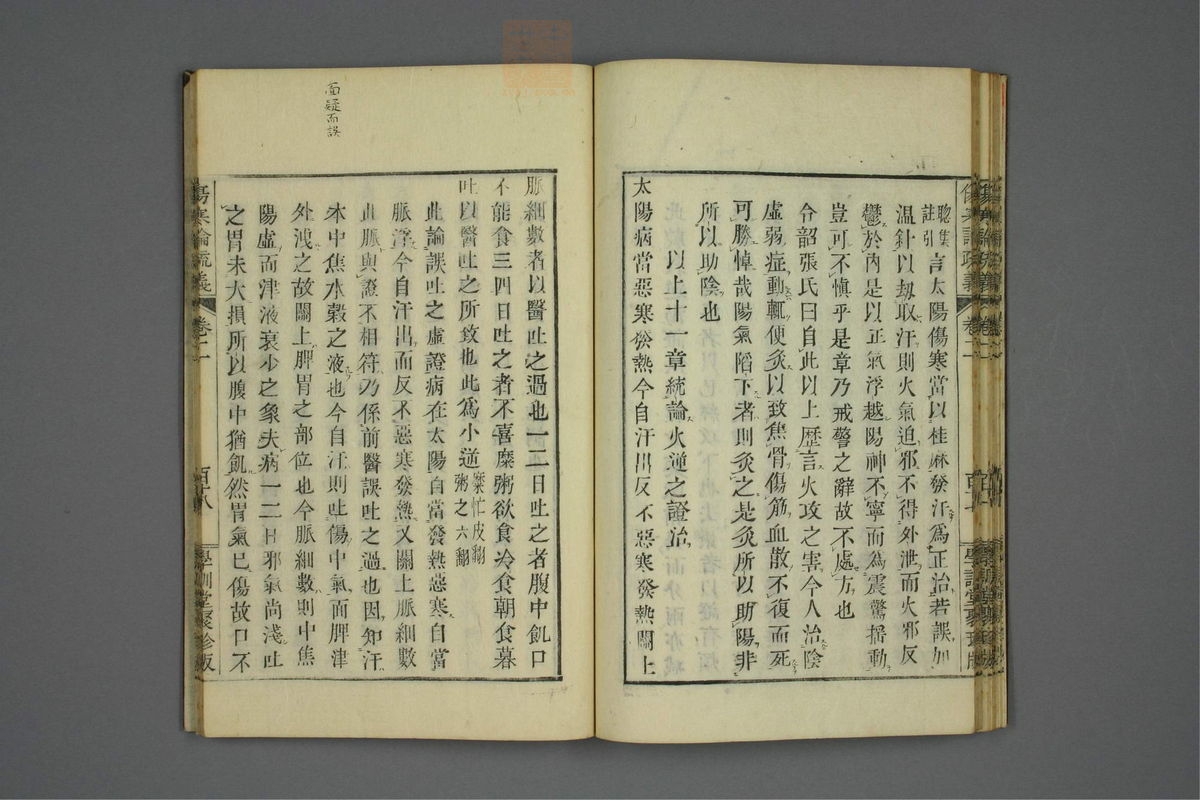 聰集註引言太陽傷寒當以桂麻發汗爲正治若誤加
温針以劫取汗則火氣迫邪不得外泄而火邪反
鬱於內是以正氣浮越陽神不寧而爲震驚搖動
豈可不愼乎是章乃戒警之辭故不處方也
令韶張氏曰自此以上歷言火攻之害今人治陰
虛弱症動輒便灸以致焦骨傷筋血散不復而死
可勝悼哉陽氣陷下者則灸之是灸所以助陽非
所以助陰也
以上十一章統論火逆之證治
太陽病當惡寒發熱今自汗出反不惡寒發熱關上
脈細數者以醫吐之過也一二日吐之者腹中飢口
不能食三四日吐之者不喜糜粥欲食冷食朝食暮
吐以醫吐之所致也此爲小逆糜忙皮翻粥之六翻
此論誤吐之虛證病在太陽自當發熱惡寒自當
脈浮今自汗出而反不惡寒發熱又關上脈細數
此脈與證不相符乃係前醫誤吐之過也因知汗
本中焦水穀之液也今自汗則吐傷中氣面脾津
外洩之故關上脾胃之部位也今脈細數則中焦
陽虛而津液衰少之象夫病一二日邪氣尚淺吐
之胃未大損所以腹中猶飢然胃氣已傷故口不
傷寒論疏義
卷二
百十八
學訓堂聚珍版
面疑而誤